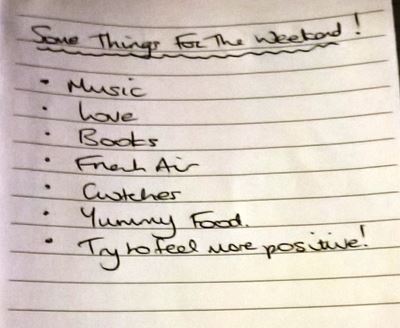 Some Things For The Weekend!
• Music
• Love
• Books
• Fresh Air
• Cwtches
• Yummy Food.
• Try to feel more positive!